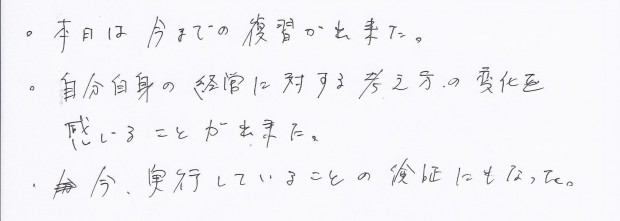 。本日は今までの復習が出来た。
。自分自身の経営に対する考え方の変化を
感じることが出来た。
・今、実行していることの検証にもなった。